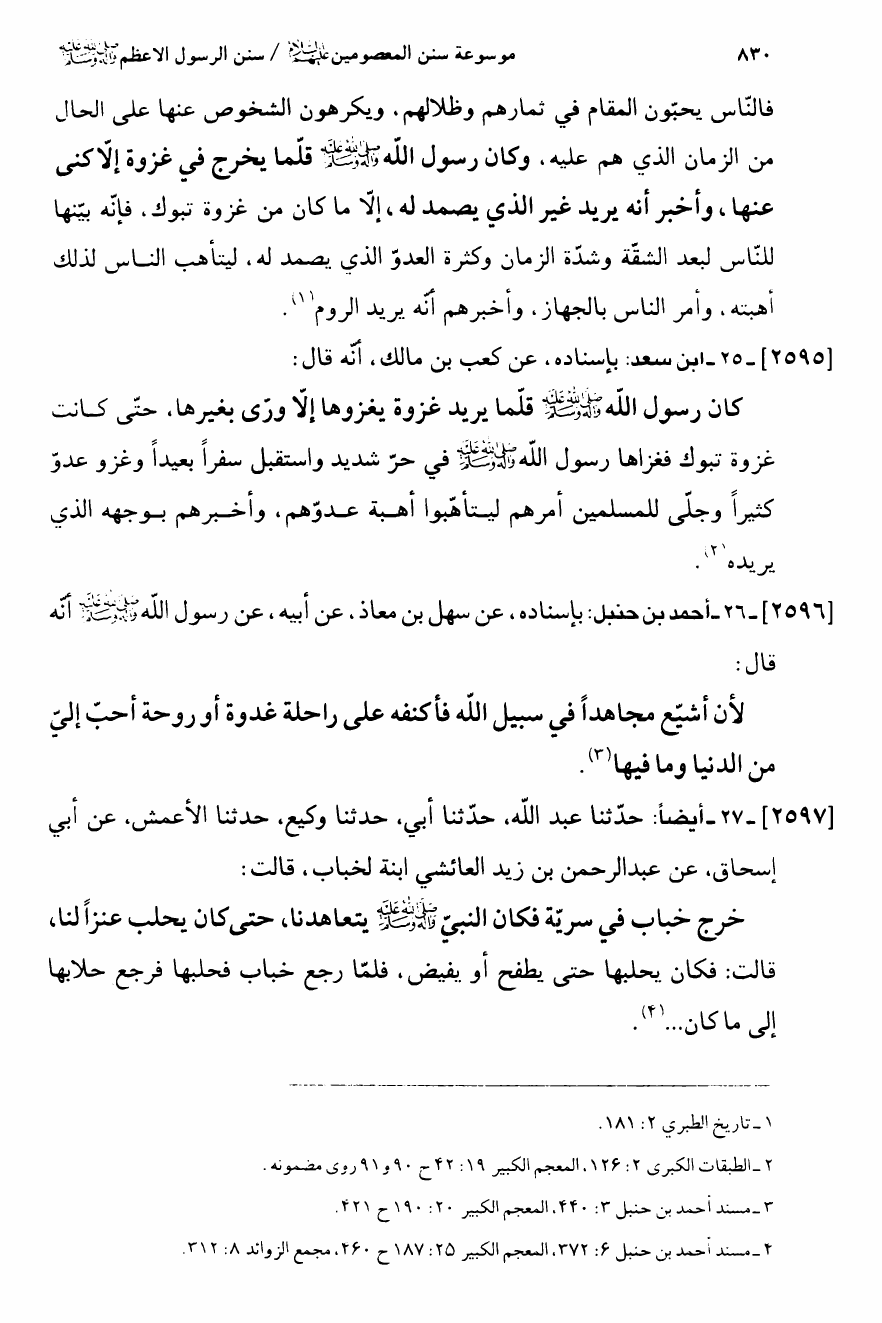 ٨٣٠ موسوعة سنن المعصومين عليهم السلام / سنن الرسول الاعظم صلى الله عليه وآله وسلم
فالنّاس يحبّون المقام في ثمارهم وظلالهم، ويكرهون الشخوص عنها على الحال
من الزمان الذي هم عليه، وكان رسول اللّه صلى الله عليه وآله وسلم قلّما يخرج في غزوة إلّا كنى
عنها، وأخبر أنه يريد غير الذي يصمد له، إلّا ما كان من غزوة تبوك، فإنّه بيّنها
للنّاس لبعد الشقّة وشدّة الزمان وكثرة العدوّ الذي يصمد له، ليتأهب الناس لذلك
أهبته، وأمر الناس بالجهاز، وأخبرهم أنّه يريد الروم(١).
[٢٥٩٥] ـ ٢٥ ـ ابن سعد: بإسناده، عن كعب بن مالك، أنّه قال:
كان رسول اللّه صلى الله عليه وآله وسلم قلّما يريد غزوة يغزوها إلّا ورّى بغيرها، حتّى كانت
غزوة تبوك فغزاها رسول اللّه صلى الله عليه وآله وسلم في حرّ شديد واستقبل سفراً بعيداً وغزو عدوّ
كثيراً وجلّى للمسلمين أمرهم ليتأهّبوا أهبة عدوّهم، وأخبرهم بوجهه الذي
يريده(٢).
[٢٥٩٦] ـ ٢٦ ـ أحمد بن حنبل: بإسناده، عن سهل بن معاذ، عن أبيه، عن رسول اللّه صلى الله عليه وآله وسلم أنّه
قال:
لأن أشيّع مجاهداً في سبيل اللّه فأكنفه على راحلة غدوة أو روحة أحبّ إليّ
من الدنيا وما فيها(٣).
[٢٥٩٧] ـ ٢٧ ـ أيضاً: حدّثنا عبد اللّه، حدّثنا أبي، حدثنا وكيع، حدثنا الأعمش، عن أبي
إسحاق، عن عبدالرحمن بن زيد العائشي ابنة لخباب، قالت:
خرج خباب في سريّة فكان النبيّ صلى الله عليه وآله وسلم يتعاهدنا، حتى كان يحلب عنزاً لنا،
قالت: فكان يحلبها حتى يطفح أو يفيض، فلمّا رجع خباب فحلبها فرجع حلابها
إلى ما كان...(۴).
١ ـ تاريخ الطبري ٢: ١٨١.
٢ ـ الطبقات الكبرى ٢: ١٢۶، المعجم الكبير ١٩: ۴٢ ح ٩٠ و ٩١ روى مضمونه.
٣ ـ مسند أحمد بن حنبل ٣: ۴۴٠، المعجم الكبير ٢٠: ١٩٠ ح ۴٢١.
۴ ـ مسند أحمد بن حنبل ۶: ٣٧٢، المعجم الكبير ٢۵: ١٨٧ ح ۴۶٠، مجمع الزوائد ٨: ٣١٢.